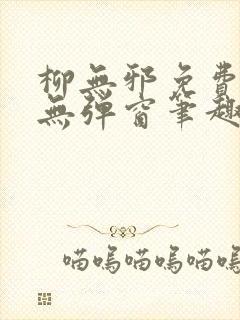 柳無邪免費
無彈窗筆趣
喵嗚喵嗚喵嗚